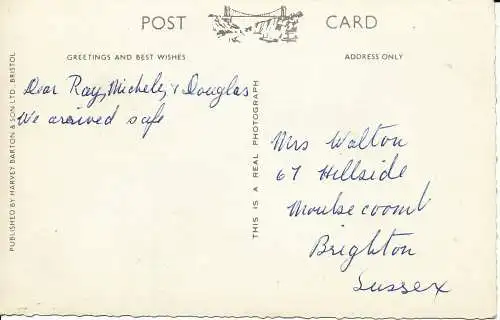 POST CARD
GREETINGS AND BEST WISHES
ADDRESS ONLY
Dear Ray, Michele, & Douglas
We arrived safe
PUBLISHED BY HARVEY BARTON & SON LTD., BRISTOL
THIS IS A REAL PHOTOGRAPH
Mrs Walton
67 Hillside
Moulsecoomb
Brighton
Sussex